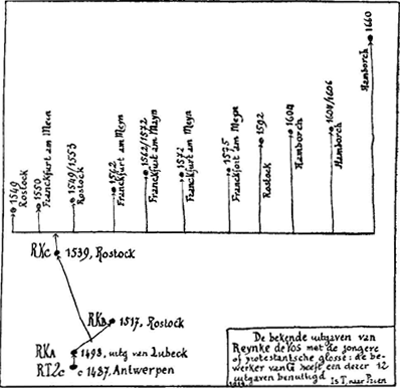 1660
Hamborch
1549
Rostock
1550
Franckfurt am Meyn
1549/1553
Rostock
1562
Franckfurt am Meyn
1562/1572
Franckfurt am Mayn
1571
Franckfurt am Meyn
1575
Franckfort am Meyn
1592
Rostock
1604
Hamborch
1604/1606
Hamborch
RKc 1539, Rostock
RKB 1517, Rostock
RKA 1498, uitg van Lubeck
RT2c c 1487, Antwerpen
De bekende uitgaven van
Reynke de Vos met de jongere
of protestantsche glosse: de be-
werker van G heeft een dezer 12
uitgaven benuttigd